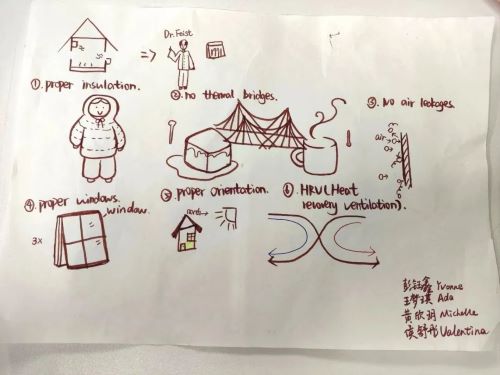 Dr. Feist
① proper insulation.
② no thermal bridges.
③ No air leakages.
air→
④ proper windows.
window
3x
⑤ proper orientation.
⑥ HRV (Heat
recovery ventilation).
Yvonne
王梦琪 Ada
黄欣玥 Michelle
Valentina